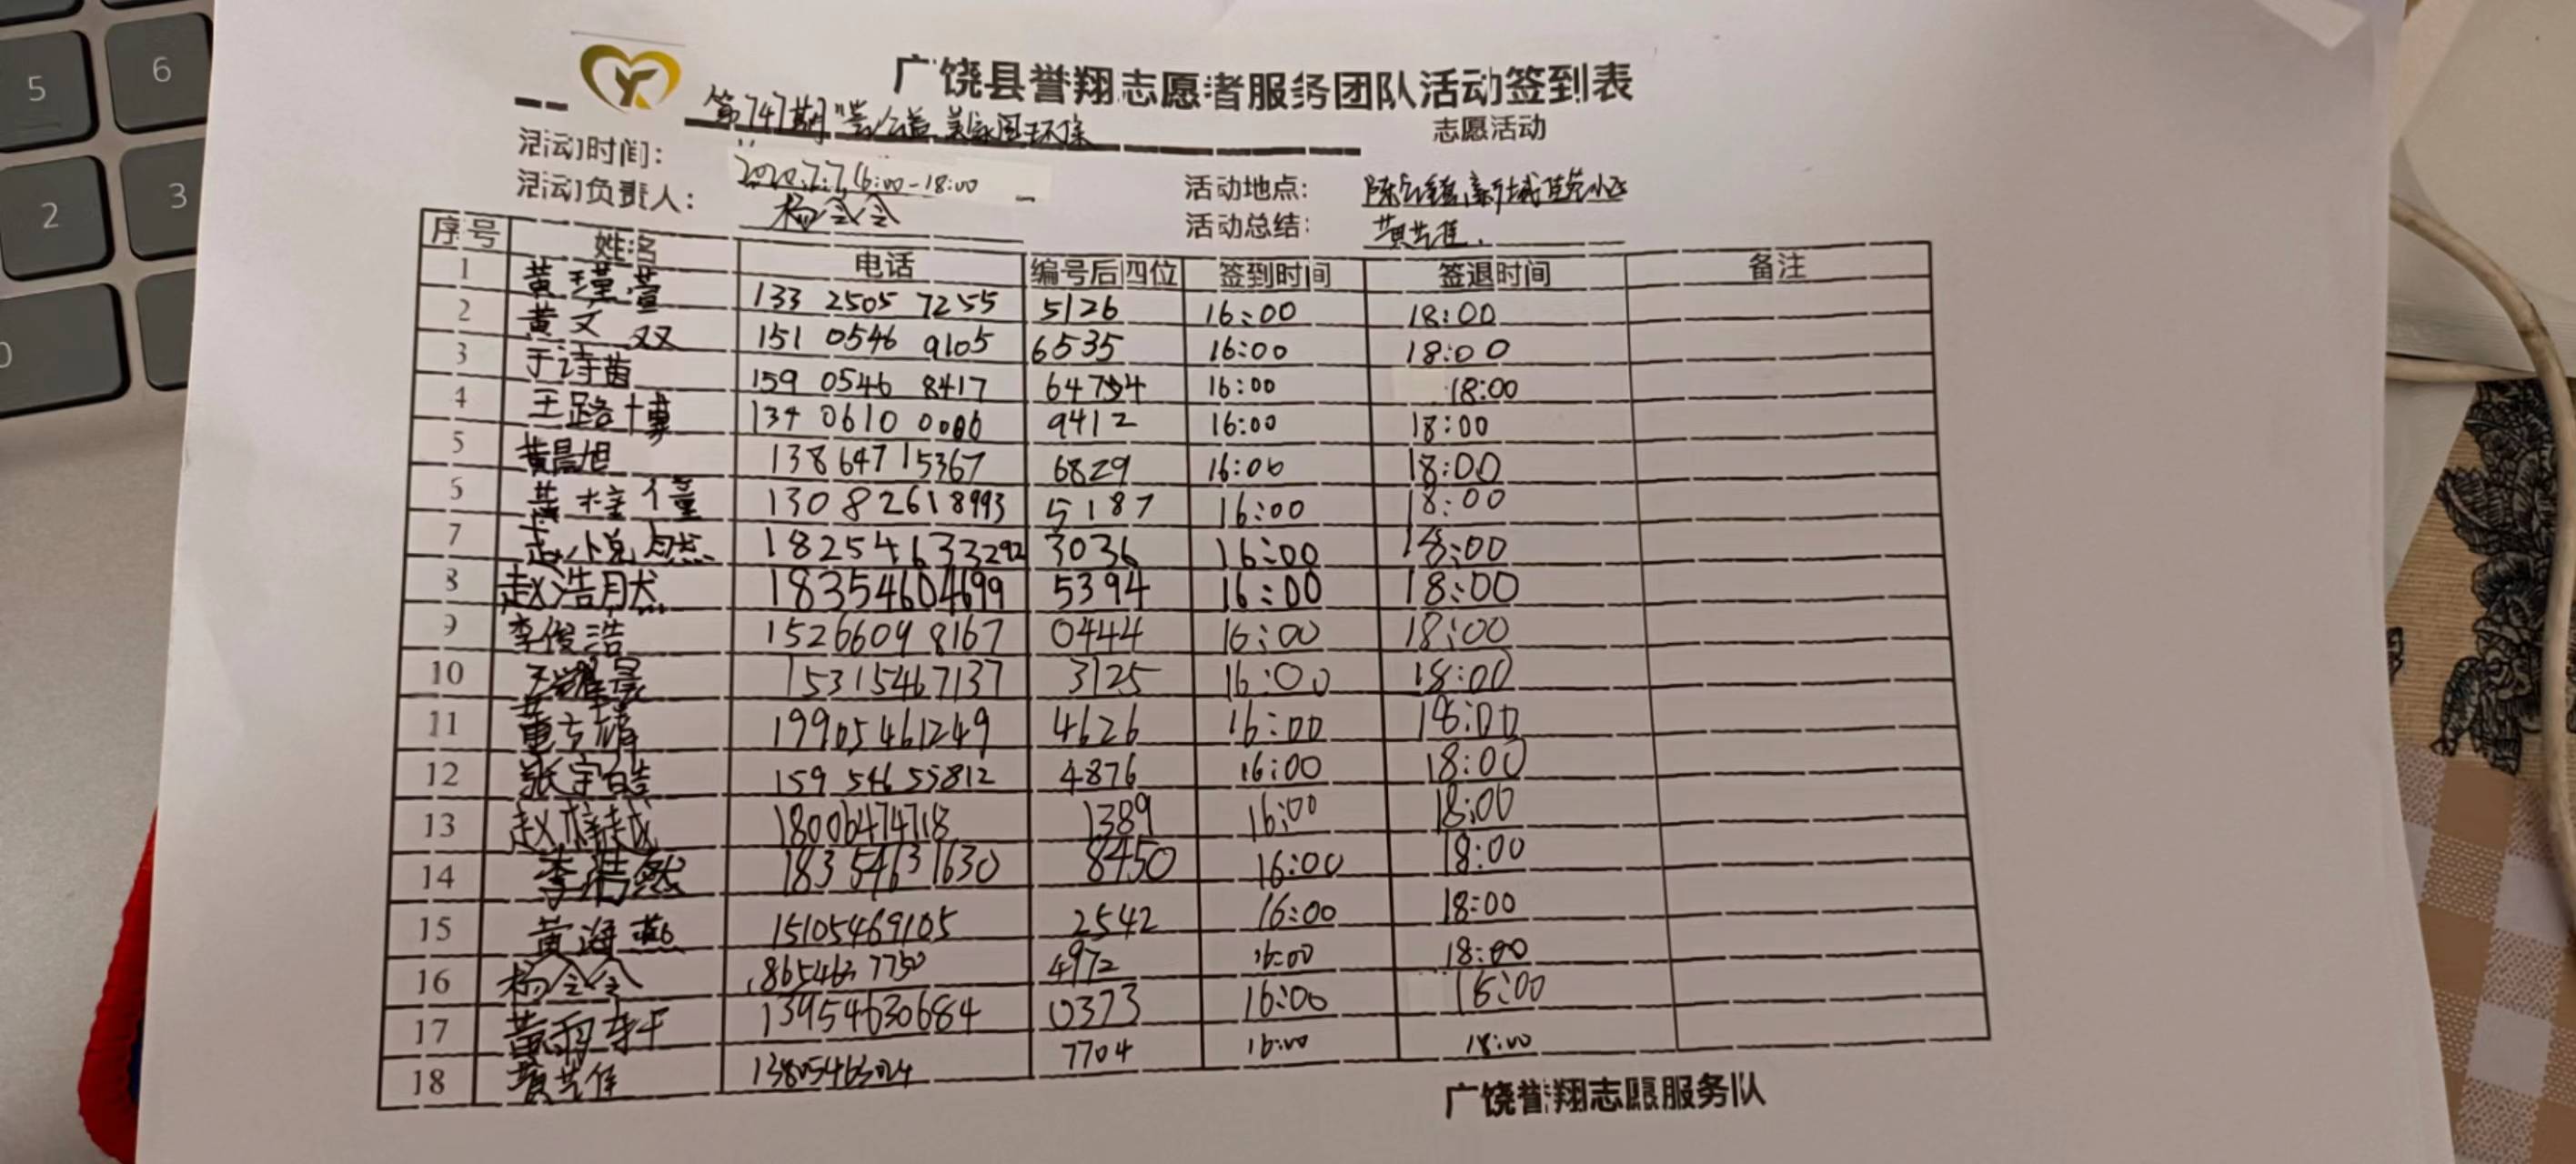 广饶县誉翔志愿者服务团队活动签到表
第747期"誉公益 美家园环保 志愿活动
活动时间: 2020.7.7.16:00-18:00 活动地点: 陈官镇新城佳苑小区
活动负责人: 杨会会 活动总结: 黄艺佳.
序号 姓名 电话 编号后四位 签到时间 签退时间 备注
1 黄瑾萱 133 2505 7255 5126 16:00 18:00
2 黄文双 151 0546 9105 6535 16:00 18:00
3 于诗茵 159 0546 8417 16:00 18:00
4 王路博 134 0610 9412 16:00 18:00
5 黄晨旭 138647 15367 6829 16:00 18:00
6 黄梓僮 130 82618993 5187 16:00 18:00
7 赵悦然 18254633292 3036 16:00 18:00
8 赵浩然 18354604699 5394 16:00 18:00
9 李俊浩 15266098167 0444 16:00 18:00
10 王耀晨 15315467137 3125 16:00 18:00
11 19905461249 4626 16:00 18:00
12 张宇皓 159 546 55812 4876 16:00 18:00
13 赵梓越 18006474718 1389 16:00 18:00
14 李浩然 18354631630 8450 16:00 18:00
15 黄海燕 15105469105 2542 16:00 18:00
16 杨会会 18654637750 4972 16:00 18:00
17 黄羽轩 13954630684 0373 16:00 18:00
18 黄艺佳 13805463024 7704 16:00 18:00
广饶誉翔志愿服务队
5
6
2
3